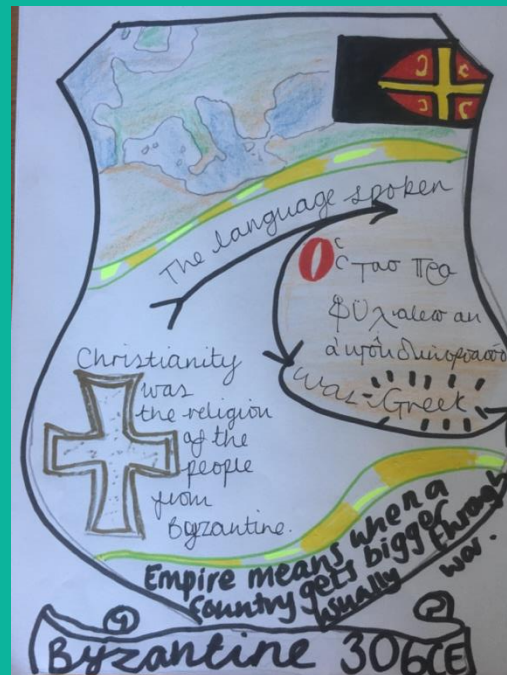 The language spoken
was Greek
Christianity
was
the religion
of the
people
from
Byzantine.
Empire means when a
country gets bigger
usually through
war.
Byzantine 306CE